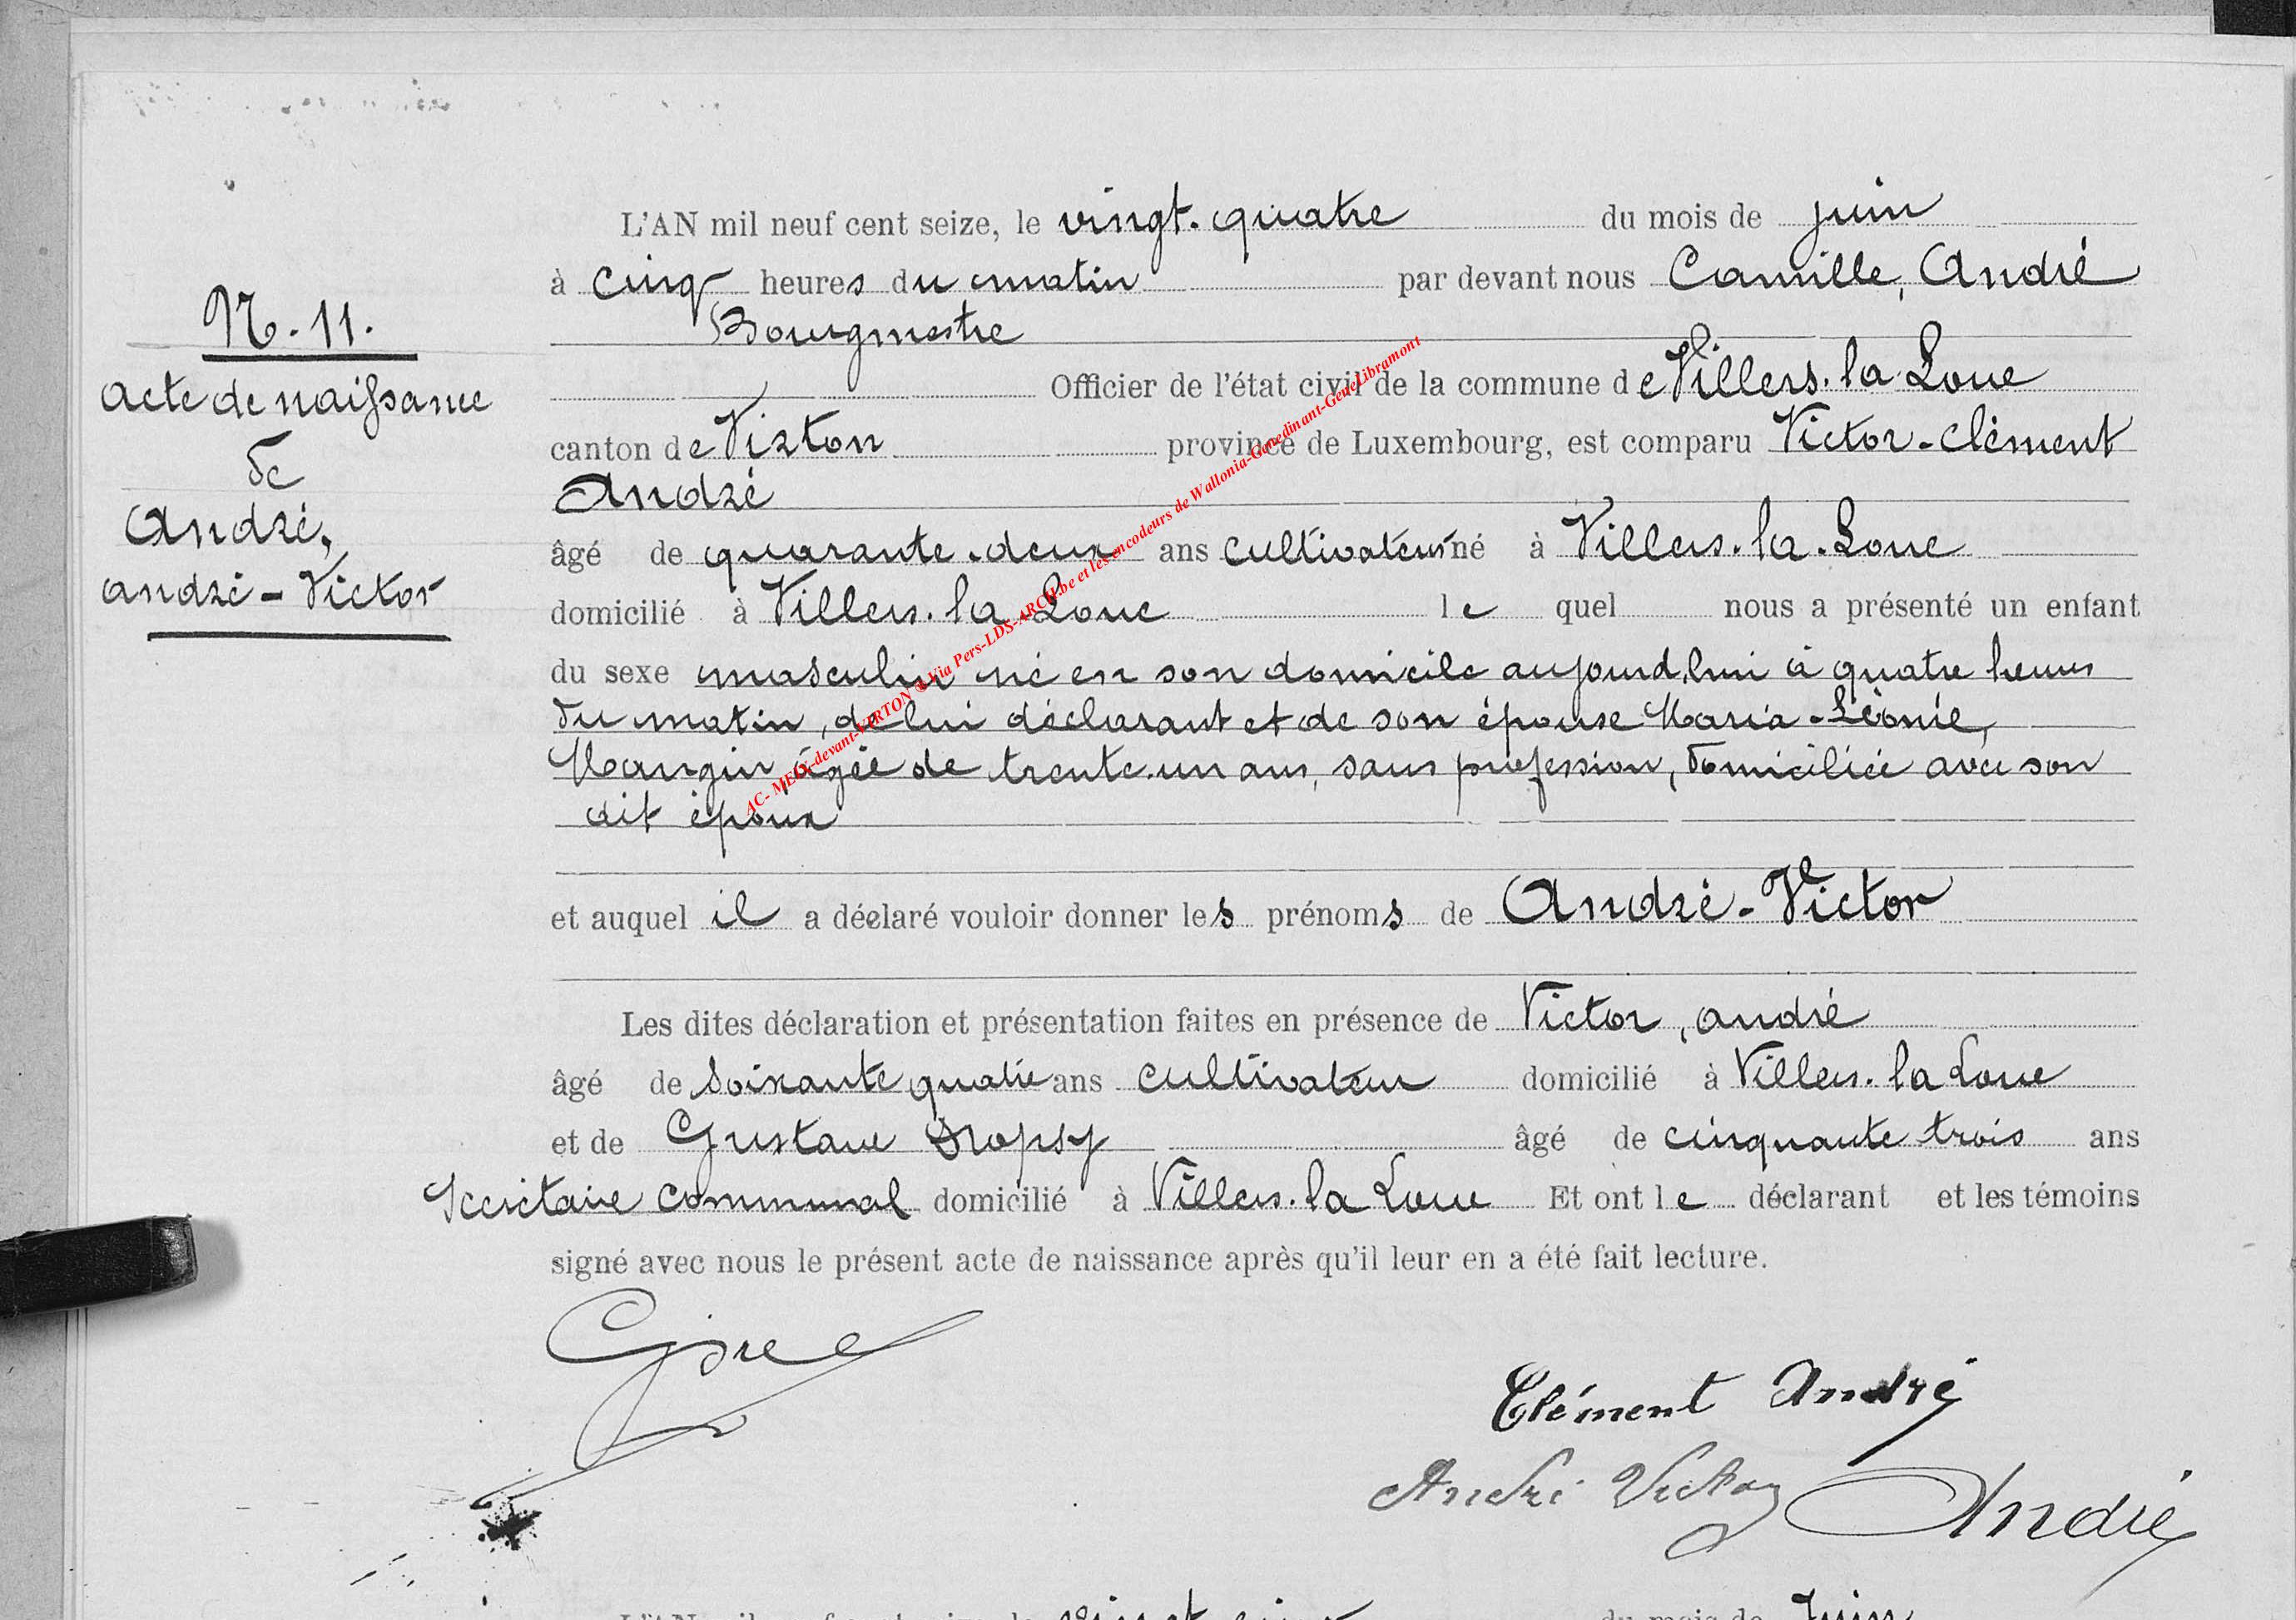 N. 11.
Acte de naissance
de
André,
André - Victor
L'AN mil neuf cent seize, le vingt-quatre du mois de juin
à cinq heures du matin par devant nous Camille, André
Bourgmestre
Officier de l'état civil de la commune de Villers-la-Loue
canton de Virton province de Luxembourg, est comparu Victor-Clément
André
âgé de quarante-deux ans cultivateur né à Villers-la-Loue
domicilié à Villers-la Loue le quel nous a présenté un enfant
du sexe masculin né en son domicile aujourd'hui à quatre heures
du matin, de lui déclarant et de son épouse Maria-Léonie,
Mangin, âgée de trente-un ans, sans profession, domiciliée avec son
dit époux
et auquel il a déclaré vouloir donner les prénoms de André-Victor
Les dites déclaration et présentation faites en présence de Victor, André
âgé de soixante quatre ans cultivateur domicilié à Villers-la Loue
et de Gustave Dropsy âgé de cinquante trois ans
Secrétaire communal domicilié à Villers-la Loue Et ont le déclarant et les témoins
signé avec nous le présent acte de naissance après qu'il leur en a été fait lecture.
Clément André
André Victor
André
AC- MEIX-devant-VIRTON @ Via Pers-LDS-ARCH.be et les encodeurs de Wallonia-Genedinant-GeneLibramont
du mois de Juin